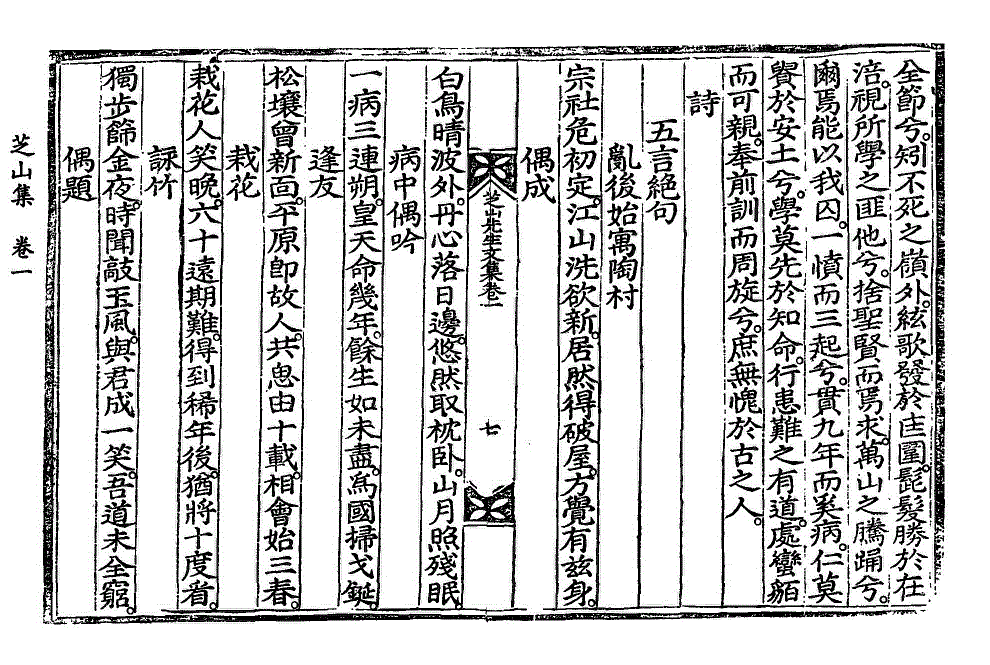 全節兮。矧不死之嶺外。絃歌發於圭圜。髭髮勝於在
涪。視所學之匪他兮。捨聖賢而焉求。萬山之騰踊兮。
爾焉能以我囚。一憤而三起兮。貫九年而奚病。仁莫
賢於安土兮。學莫先於知命。行患難之有道。處蠻貊
而可親。奉前訓而周旋兮。庶無愧於古之人。
詩
五言絕句
亂後始寓陶村
宗社危初定。江山洗欲新。居然得破屋。方覺有玆身。
偶成
芝山先生文集卷一
七
白鳥晴波外。丹心落日邊。悠然取枕臥。山月照殘眠。
病中偶吟
一病三連朔。皇天命幾年。餘生如未盡。爲國掃戈鋋。
逢友
松壤曾新面。平原卽故人。共思由十載。相會始三春。
栽花
栽花人笑晩。六十遠期難。得到稀年後。猶將十度看。
詠竹
獨步篩金夜。時聞敲玉風。與君成一笑。吾道未全窮。
偶題
芝山集 卷一